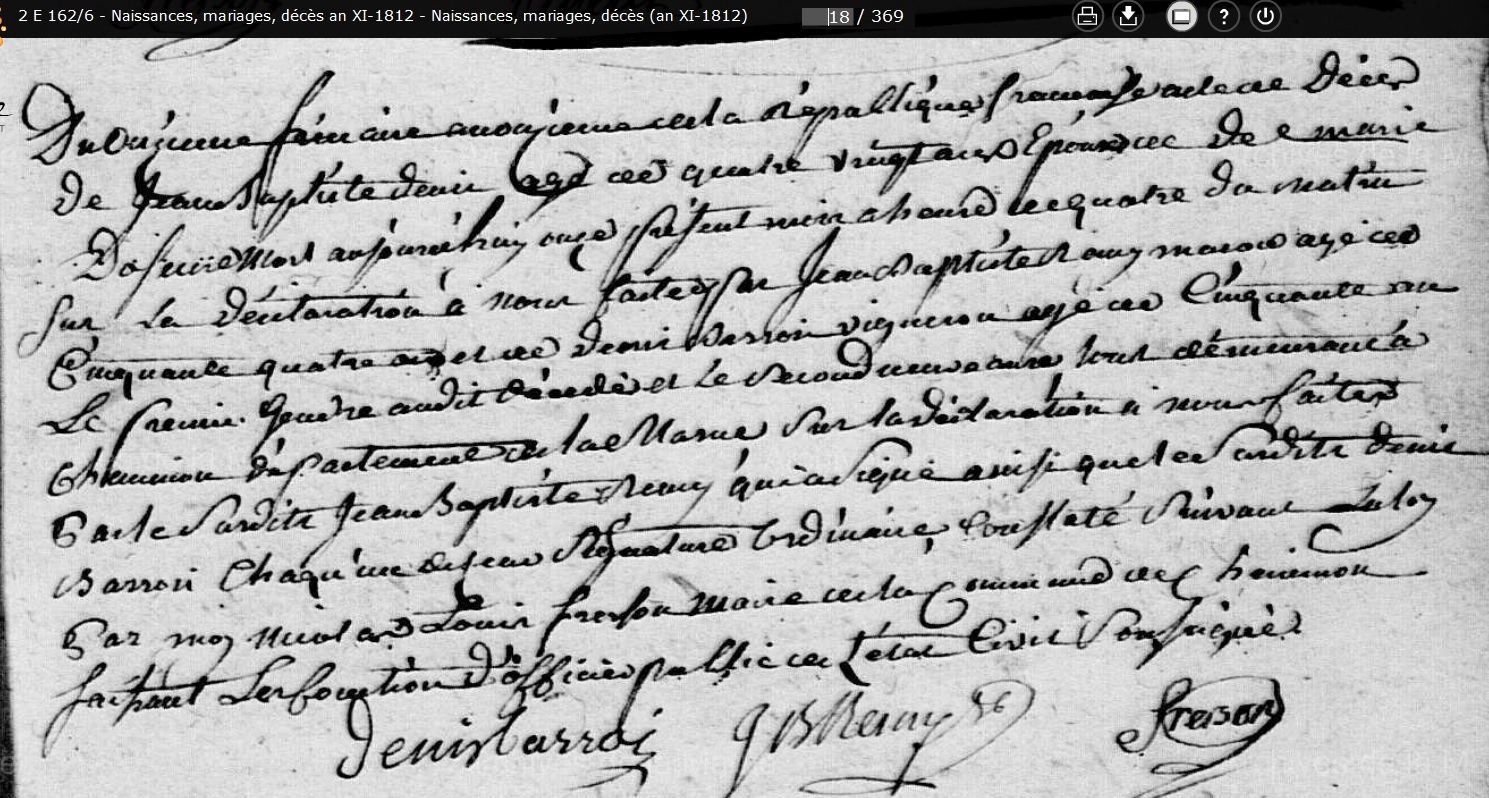 2 E 162/6 - Naissances, mariages, décès an XI-1812 - Naissances, mariages, décès (an XI-1812)
18 / 369
Du onzieme frimaire an onzieme de la république francaise acte de Décès
De Jean Baptiste denis agé de quatre vingt ans Epoux de De marie
mort aujourd'huy onze présent mois a heure de quatre du matin
Sur La Déclaration à nous faites par Jean Baptiste Remy macon agé de
Cinquante quatre ans et de Denis Barrois vigneron agé de Cinquante un
Le premier Gendre audit décédé et Le Second tout démeurant à
Cheminon département de la Marne Sur la déclaration à nous faites
Par le Susdits Jean Baptiste Remy qui a signé ainsi que le Susdits denis
Barroi Chaqu'un de leur Signature ordinaire Constaté Suivant La loy
Par moy nicolas Louis freson Maire de la Commune de Cheminon
faisant Les fonction D'officier public de L'état Civil Soussigné
denis barroi JB Remy freson